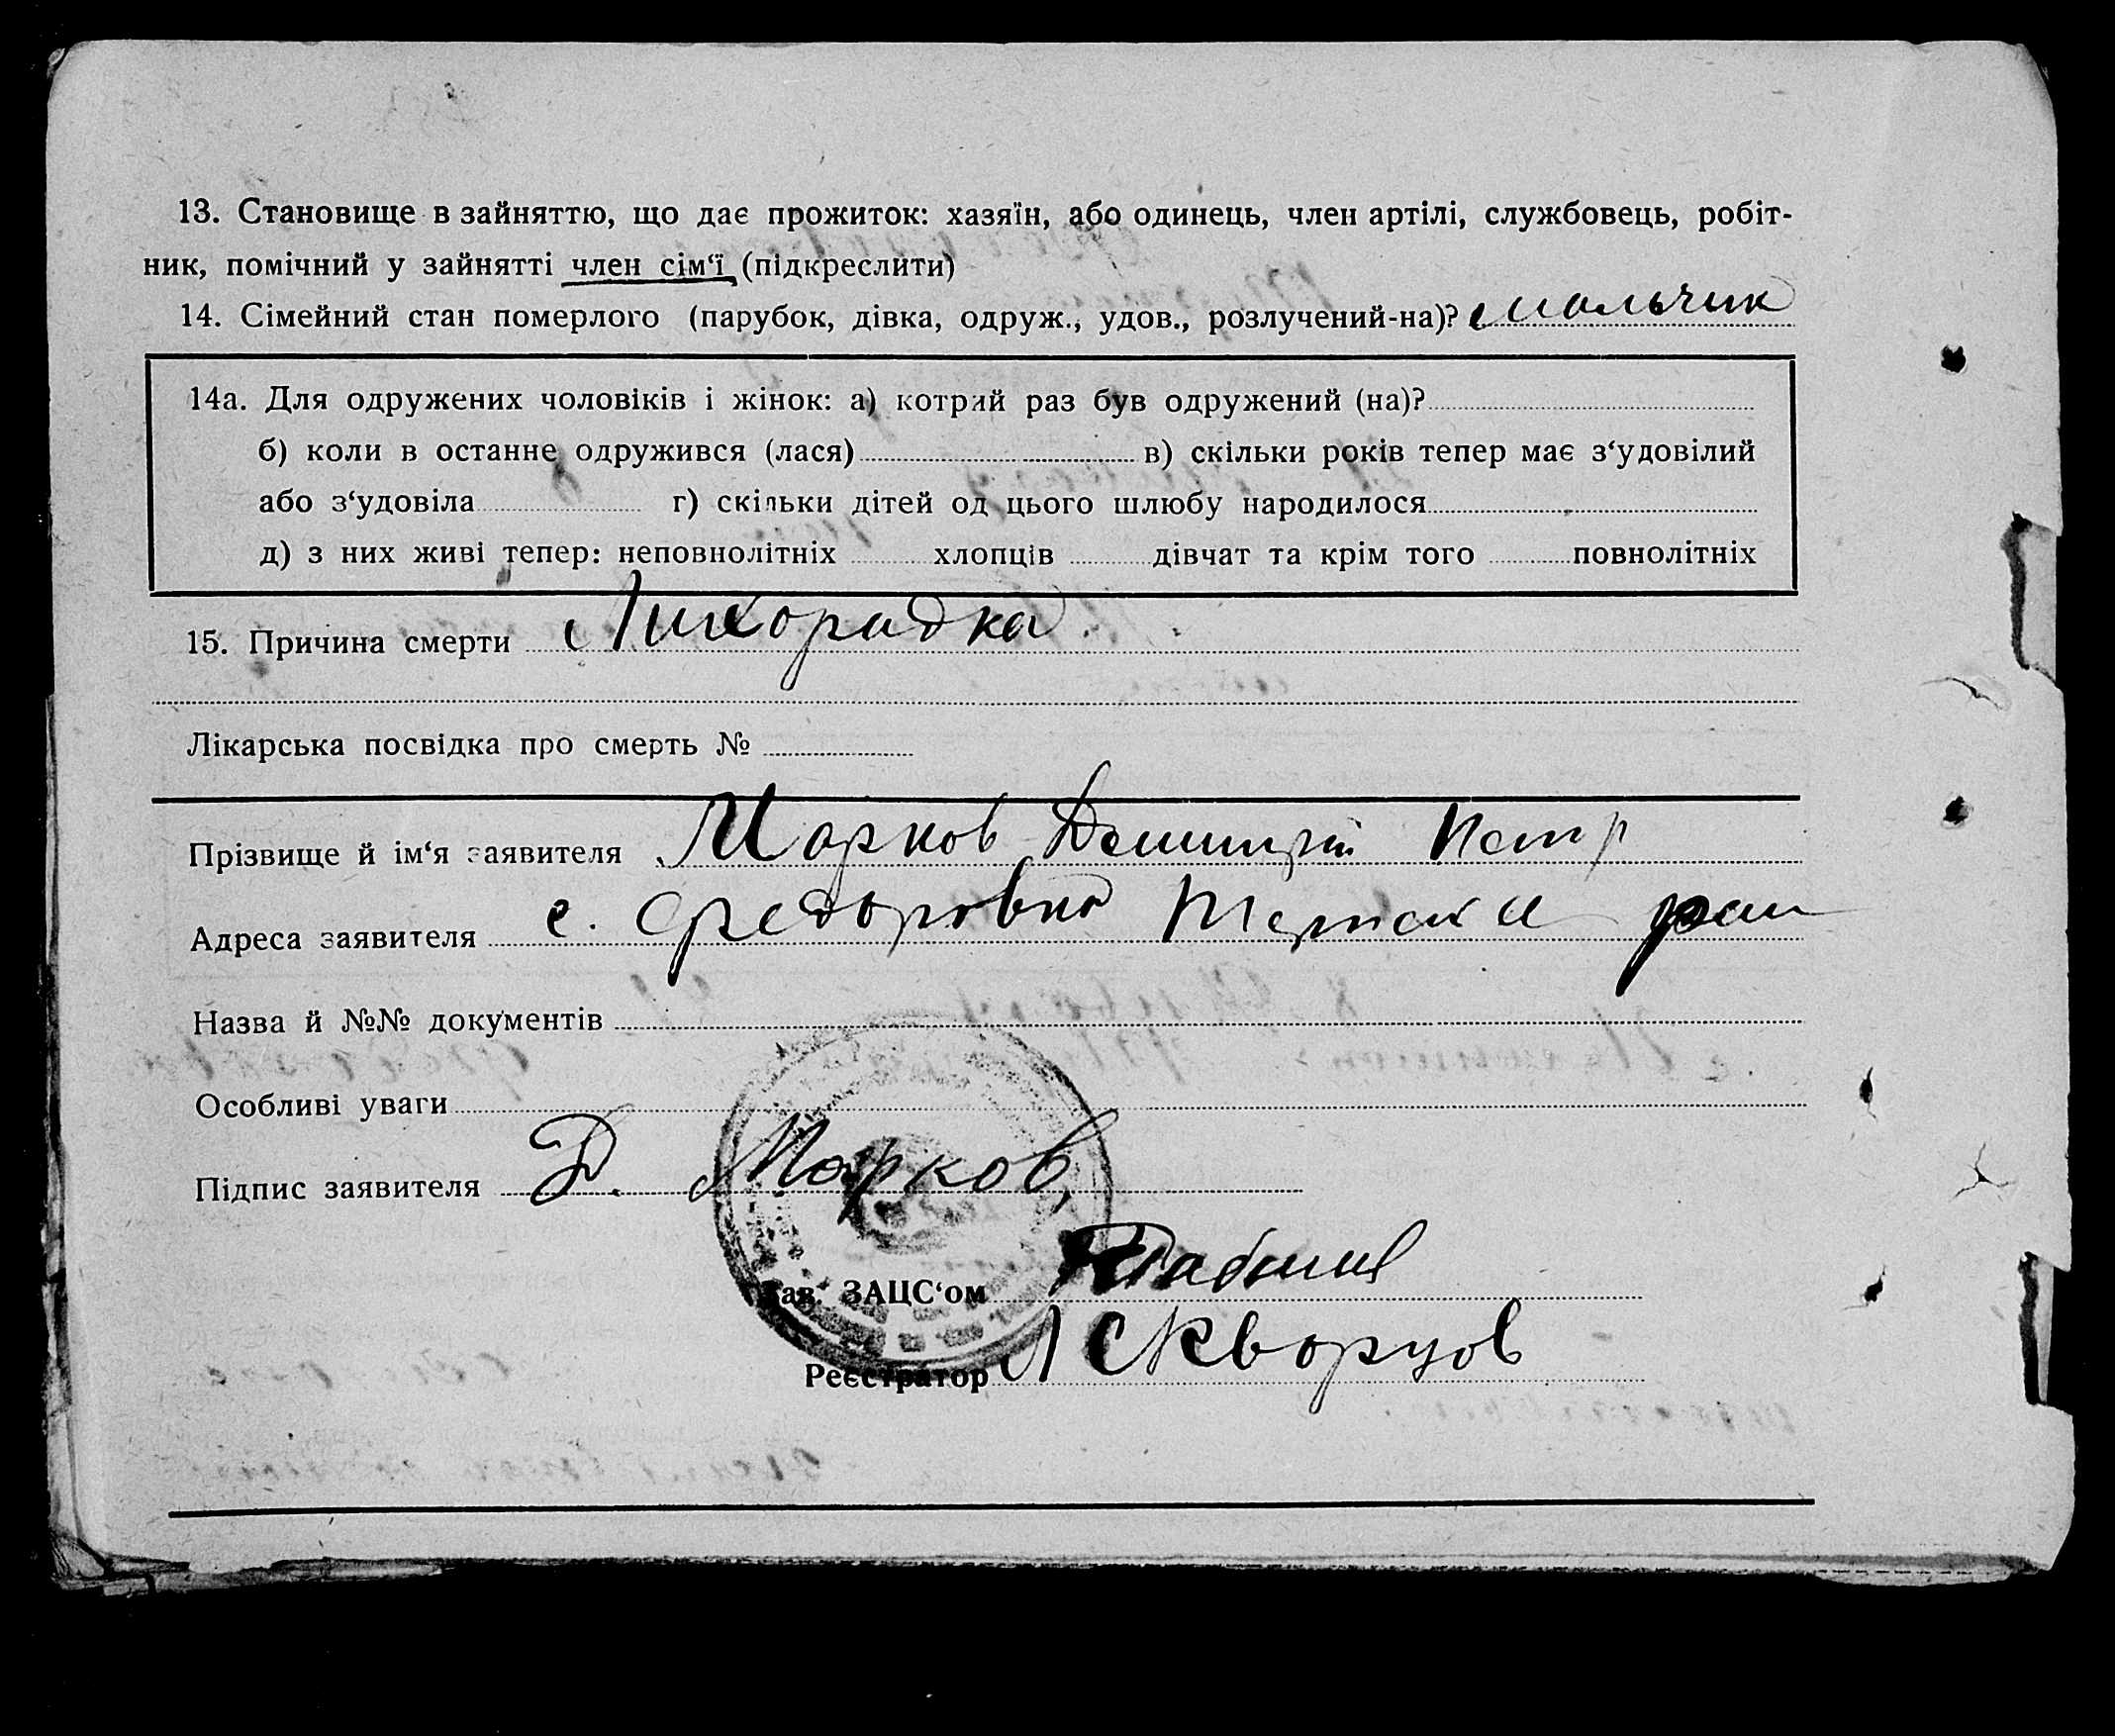 13. Становище в зайняттю, що дає прожиток: хазяїн, або одинець, член артілі, службовець, робіт-
ник, помічний у зайнятті член сім‘ї (підкреслити)
14. Сімейний стан померлого (парубок, дівка, одруж., удов., розлучений-на)? мальчик
14а. Для одружених чоловіків і жінок: а) котрий раз був одружений (на)?
б) коли в останнє одружився (лася) в) скільки років тепер має з‘удовілий
або з‘удовіла г) скільки дітей од цього шлюбу народилося
д) з них живі тепер: неповнолітніх хлопців дівчат та крім того повнолітніх
15. Причина смерти Лихорадка
Лікарська посвідка про смерть №
Прізвище й ім‘я заявителя Марков Демитрий Петр
Адреса заявителя с. Федоровка рай
Назва й №№ документів
Особливі уваги
Підпис заявителя Д. Марков
Зав. ЗАЦС‘ом
Реєстратор Скворцов